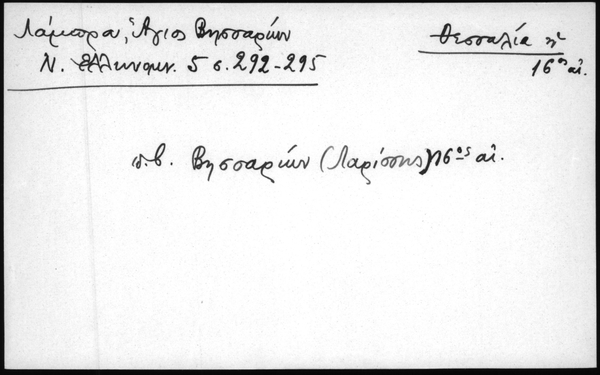 Λάμπρου, Ἅγιος Βησσαρίων
Ν. Ἑλληνομν. 5 σ. 292-295
Θεσσαλία
16ος αἰ.
π.β. Βησσαρίων (Λαρίσσης) 16ος αἰ.